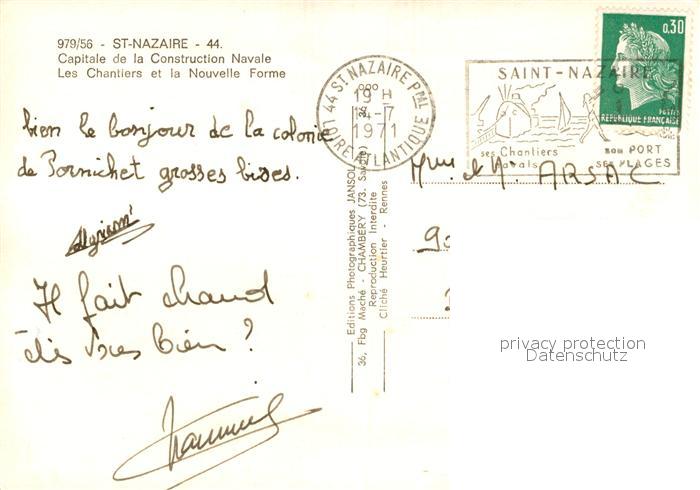 979/56 - ST-NAZAIRE - 44.
Capitale de la Construction Navale
Les Chantiers et la Nouvelle Forme
bien le bonjour de la colonie
de Pornichet grosses bises.
Myriam
Il fait chaud
très bien ?
44 ST NAZAIRE PPAL
LOIRE ATLANTIQUE
19 H
14-7
1971
SAINT-NAZAIRE
ses Chantiers
navals
son PORT
ses PLAGES
0,30
POSTES
REPUBLIQUE FRANÇAISE
Mme et Mr ARSAC
Editions Photographiques JANSOL
36, Fbg Maché - CHAMBÉRY (73. Savoie)
Reproduction Interdite
Cliché Heurtier - Rennes
privacy protection
Datenschutz